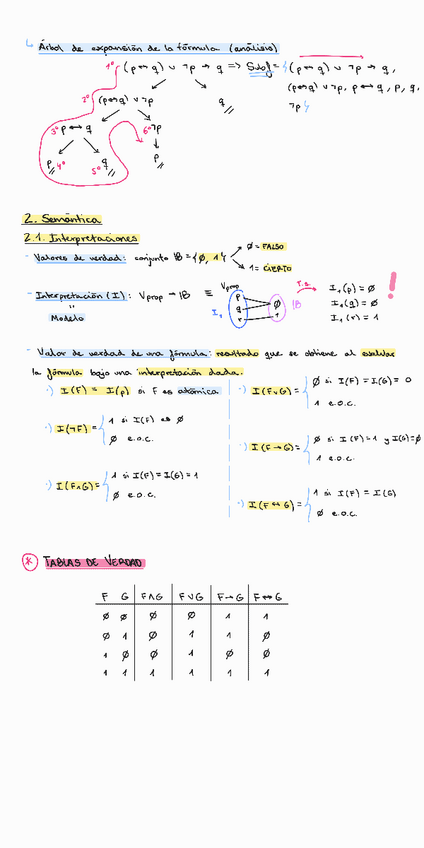 Árbol de expansión de la fórmula (análisis)
1º (p ↔ q) ∨ ¬p → q => Subf = {(p ↔ q) ∨ ¬p → q,
2º (p↔q) ∨ ¬p q (p↔q) ∨ ¬p, p ↔ q, p, q,
¬p}
3º p ↔ q 6º ¬p
p 4º 5º q p
2. Semántica
2.1. Interpretaciones
- Valores de verdad: conjunto IB = {0, 1} 0 = FALSO
1 = CIERTO
- Interpretación (I): Vprop → IB ≡ Vprop
" Modelo
I₁ p q r 0 1 IB
P.ej. I₁(p) = 0
I₁(q) = 0
I₁(r) = 1 !
- Valor de verdad de una fórmula: resultado que se obtiene al evaluar
la fórmula bajo una interpretación dada.
·) I(F) = I(p) si F es atómica
·) I(¬F) = { 1 si I(F) es 0
0 e.o.c.
·) I(F∧G) = { 1 si I(F) = I(G) = 1
0 e.o.c.
·) I(F∨G) = { 0 si I(F) = I(G) = 0
1 e.o.c.
·) I(F → G) = { 0 si I(F) = 1 y I(G) = 0
1 e.o.c.
·) I(F ↔ G) = { 1 si I(F) = I(G)
0 e.o.c.
* TABLAS DE VERDAD
F G F∧G F∨G F→G F↔G
0 0 0 0 1 1
0 1 0 1 1 0
1 0 0 1 0 0
1 1 1 1 1 1